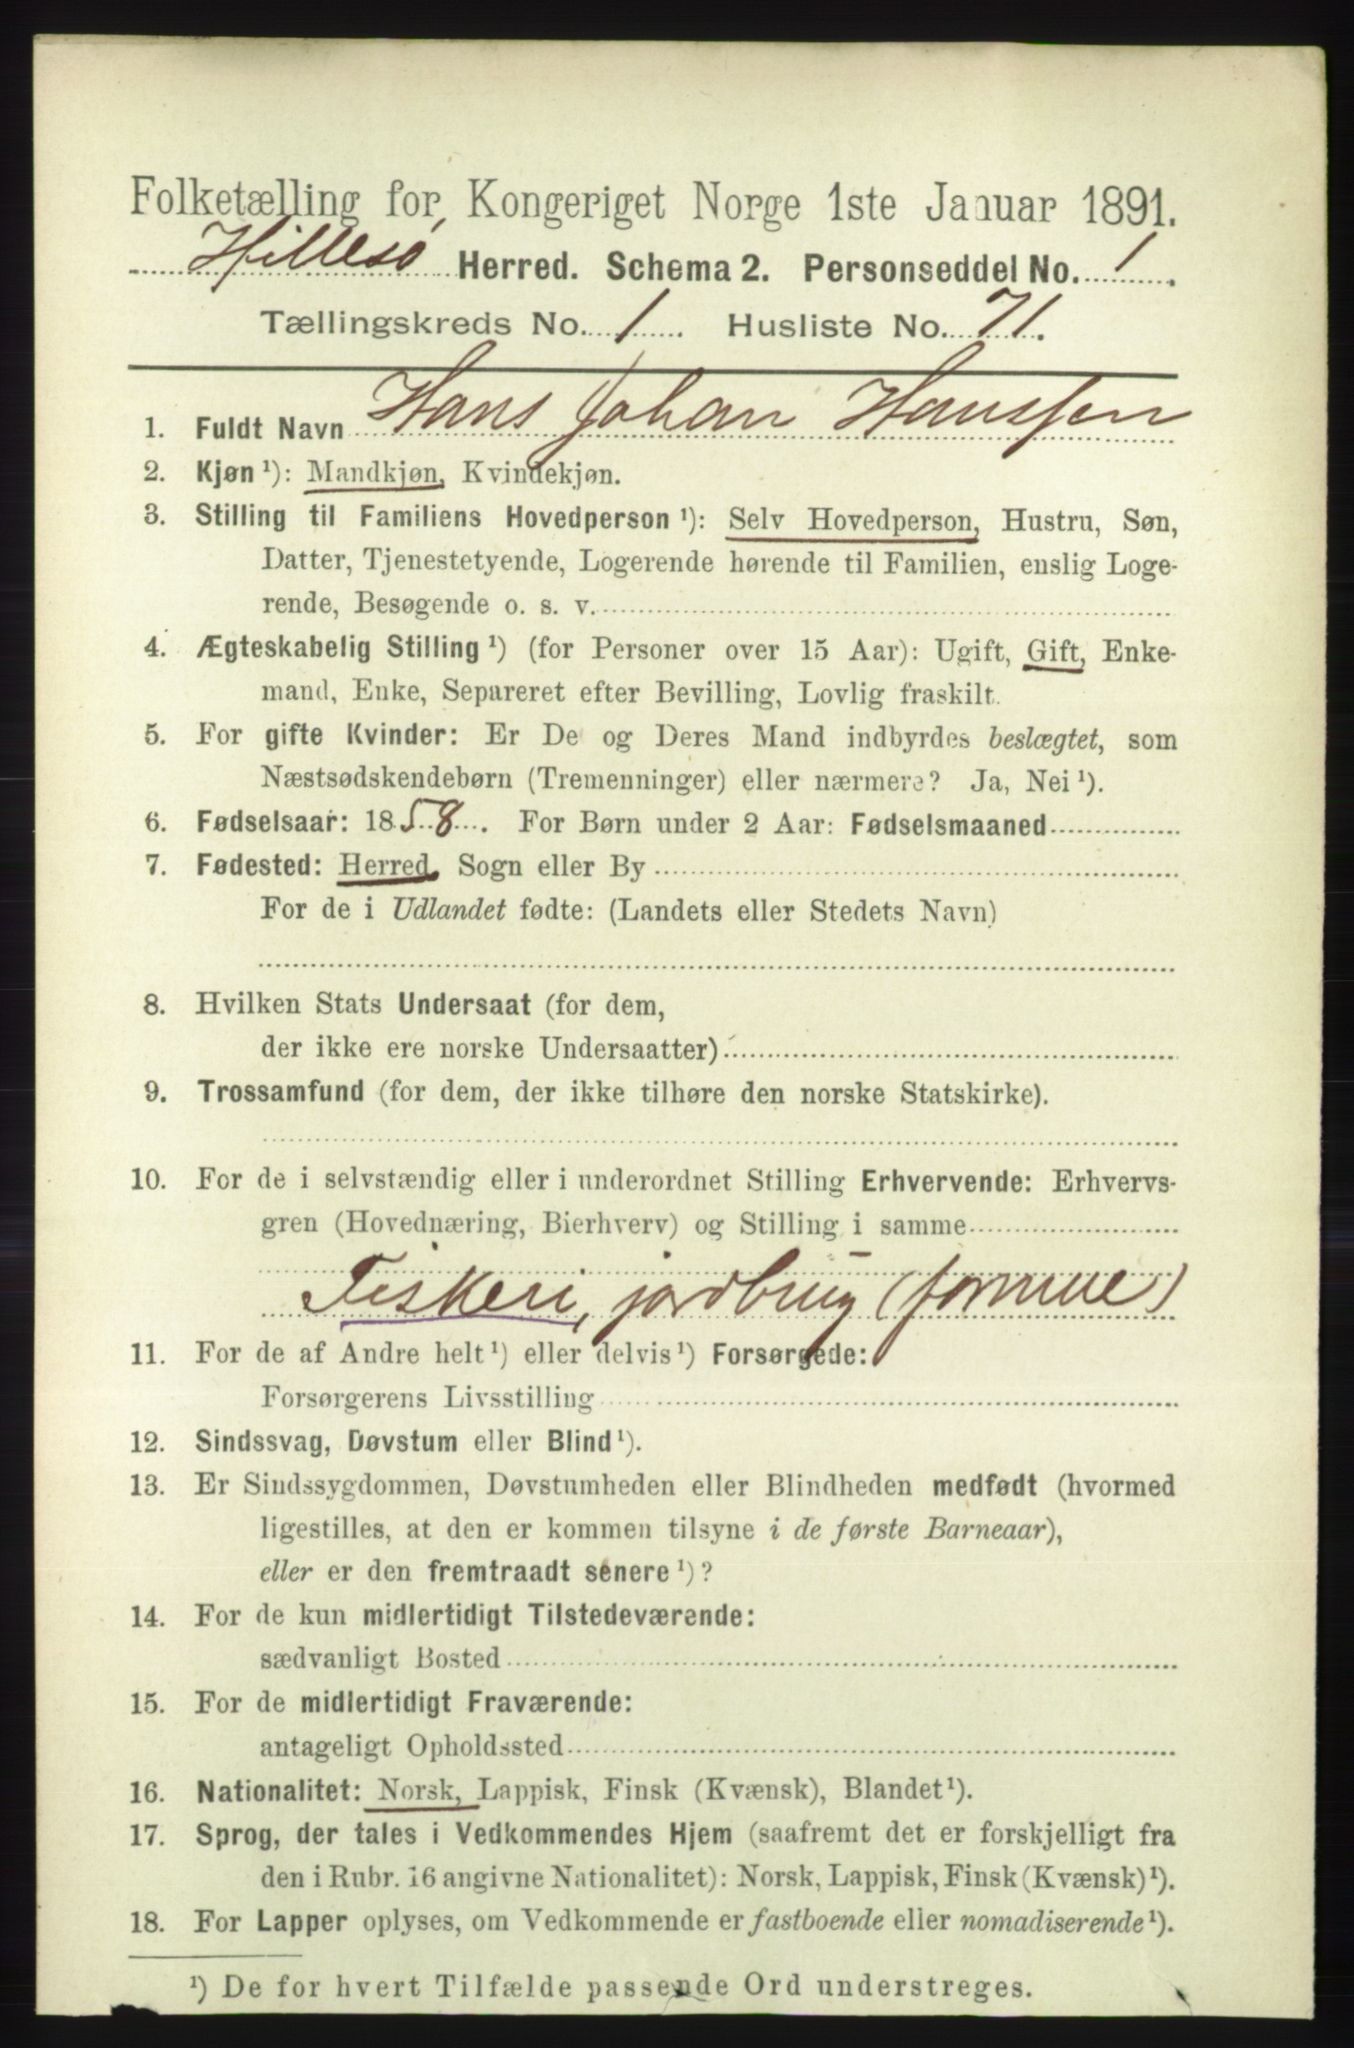 Folketælling for Kongeriget Norge 1ste Januar 1891.
Hillesø Herred. Schema 2. Personseddel No. 1.
Tællingskreds No. 1. Husliste No. 71.
1. Fuldt Navn Hans Johan Hanssen
2. Kjøn ¹): Mandkjøn, Kvindekjøn.
3. Stilling til Familiens Hovedperson ¹): Selv Hovedperson, Hustru, Søn,
Datter, Tjenestetyende, Logerende hørende til Familien, enslig Loge-
rende, Besøgende o. s. v.
4. Ægteskabelig Stilling ¹) (for Personer over 15 Aar): Ugift, Gift, Enke-
mand, Enke, Separeret efter Bevilling, Lovlig fraskilt.
5. For gifte Kvinder: Er De og Deres Mand indbyrdes beslægtet, som
Næstsødskendebørn (Tremenninger) eller nærmere? Ja, Nei ¹).
6. Fødselsaar: 1858. For Børn under 2 Aar: Fødselsmaaned
7. Fødested: Herred, Sogn eller By
For de i Udlandet fødte: (Landets eller Stedets Navn)
8. Hvilken Stats Undersaat (for dem,
der ikke ere norske Undersaatter)
9. Trossamfund (for dem, der ikke tilhøre den norske Statskirke).
10. For de i selvstændig eller i underordnet Stilling Erhvervende: Erhvervs-
gren (Hovednæring, Bierhverv) og Stilling i samme
Fiskeri, jordbrug (formue)
11. For de af Andre helt ¹) eller delvis ¹) Forsørgede:
Forsørgerens Livsstilling
12. Sindssvag, Døvstum eller Blind ¹).
13. Er Sindssygdommen, Døvstumheden eller Blindheden medfødt (hvormed
ligestilles, at den er kommen tilsyne i de første Barneaar),
eller er den fremtraadt senere ¹)?
14. For de kun midlertidigt Tilstedeværende:
sædvanligt Bosted
15. For de midlertidigt Fraværende:
antageligt Opholdssted
16. Nationalitet: Norsk, Lappisk, Finsk (Kvænsk), Blandet ¹).
17. Sprog, der tales i Vedkommendes Hjem (saafremt det er forskjelligt fra
den i Rubr. 16 angivne Nationalitet): Norsk, Lappisk, Finsk (Kvænsk) ¹).
18. For Lapper oplyses, om Vedkommende er fastboende eller nomadiserende ¹).
¹) De for hvert Tilfælde passende Ord understreges.